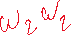 w₂ w₂